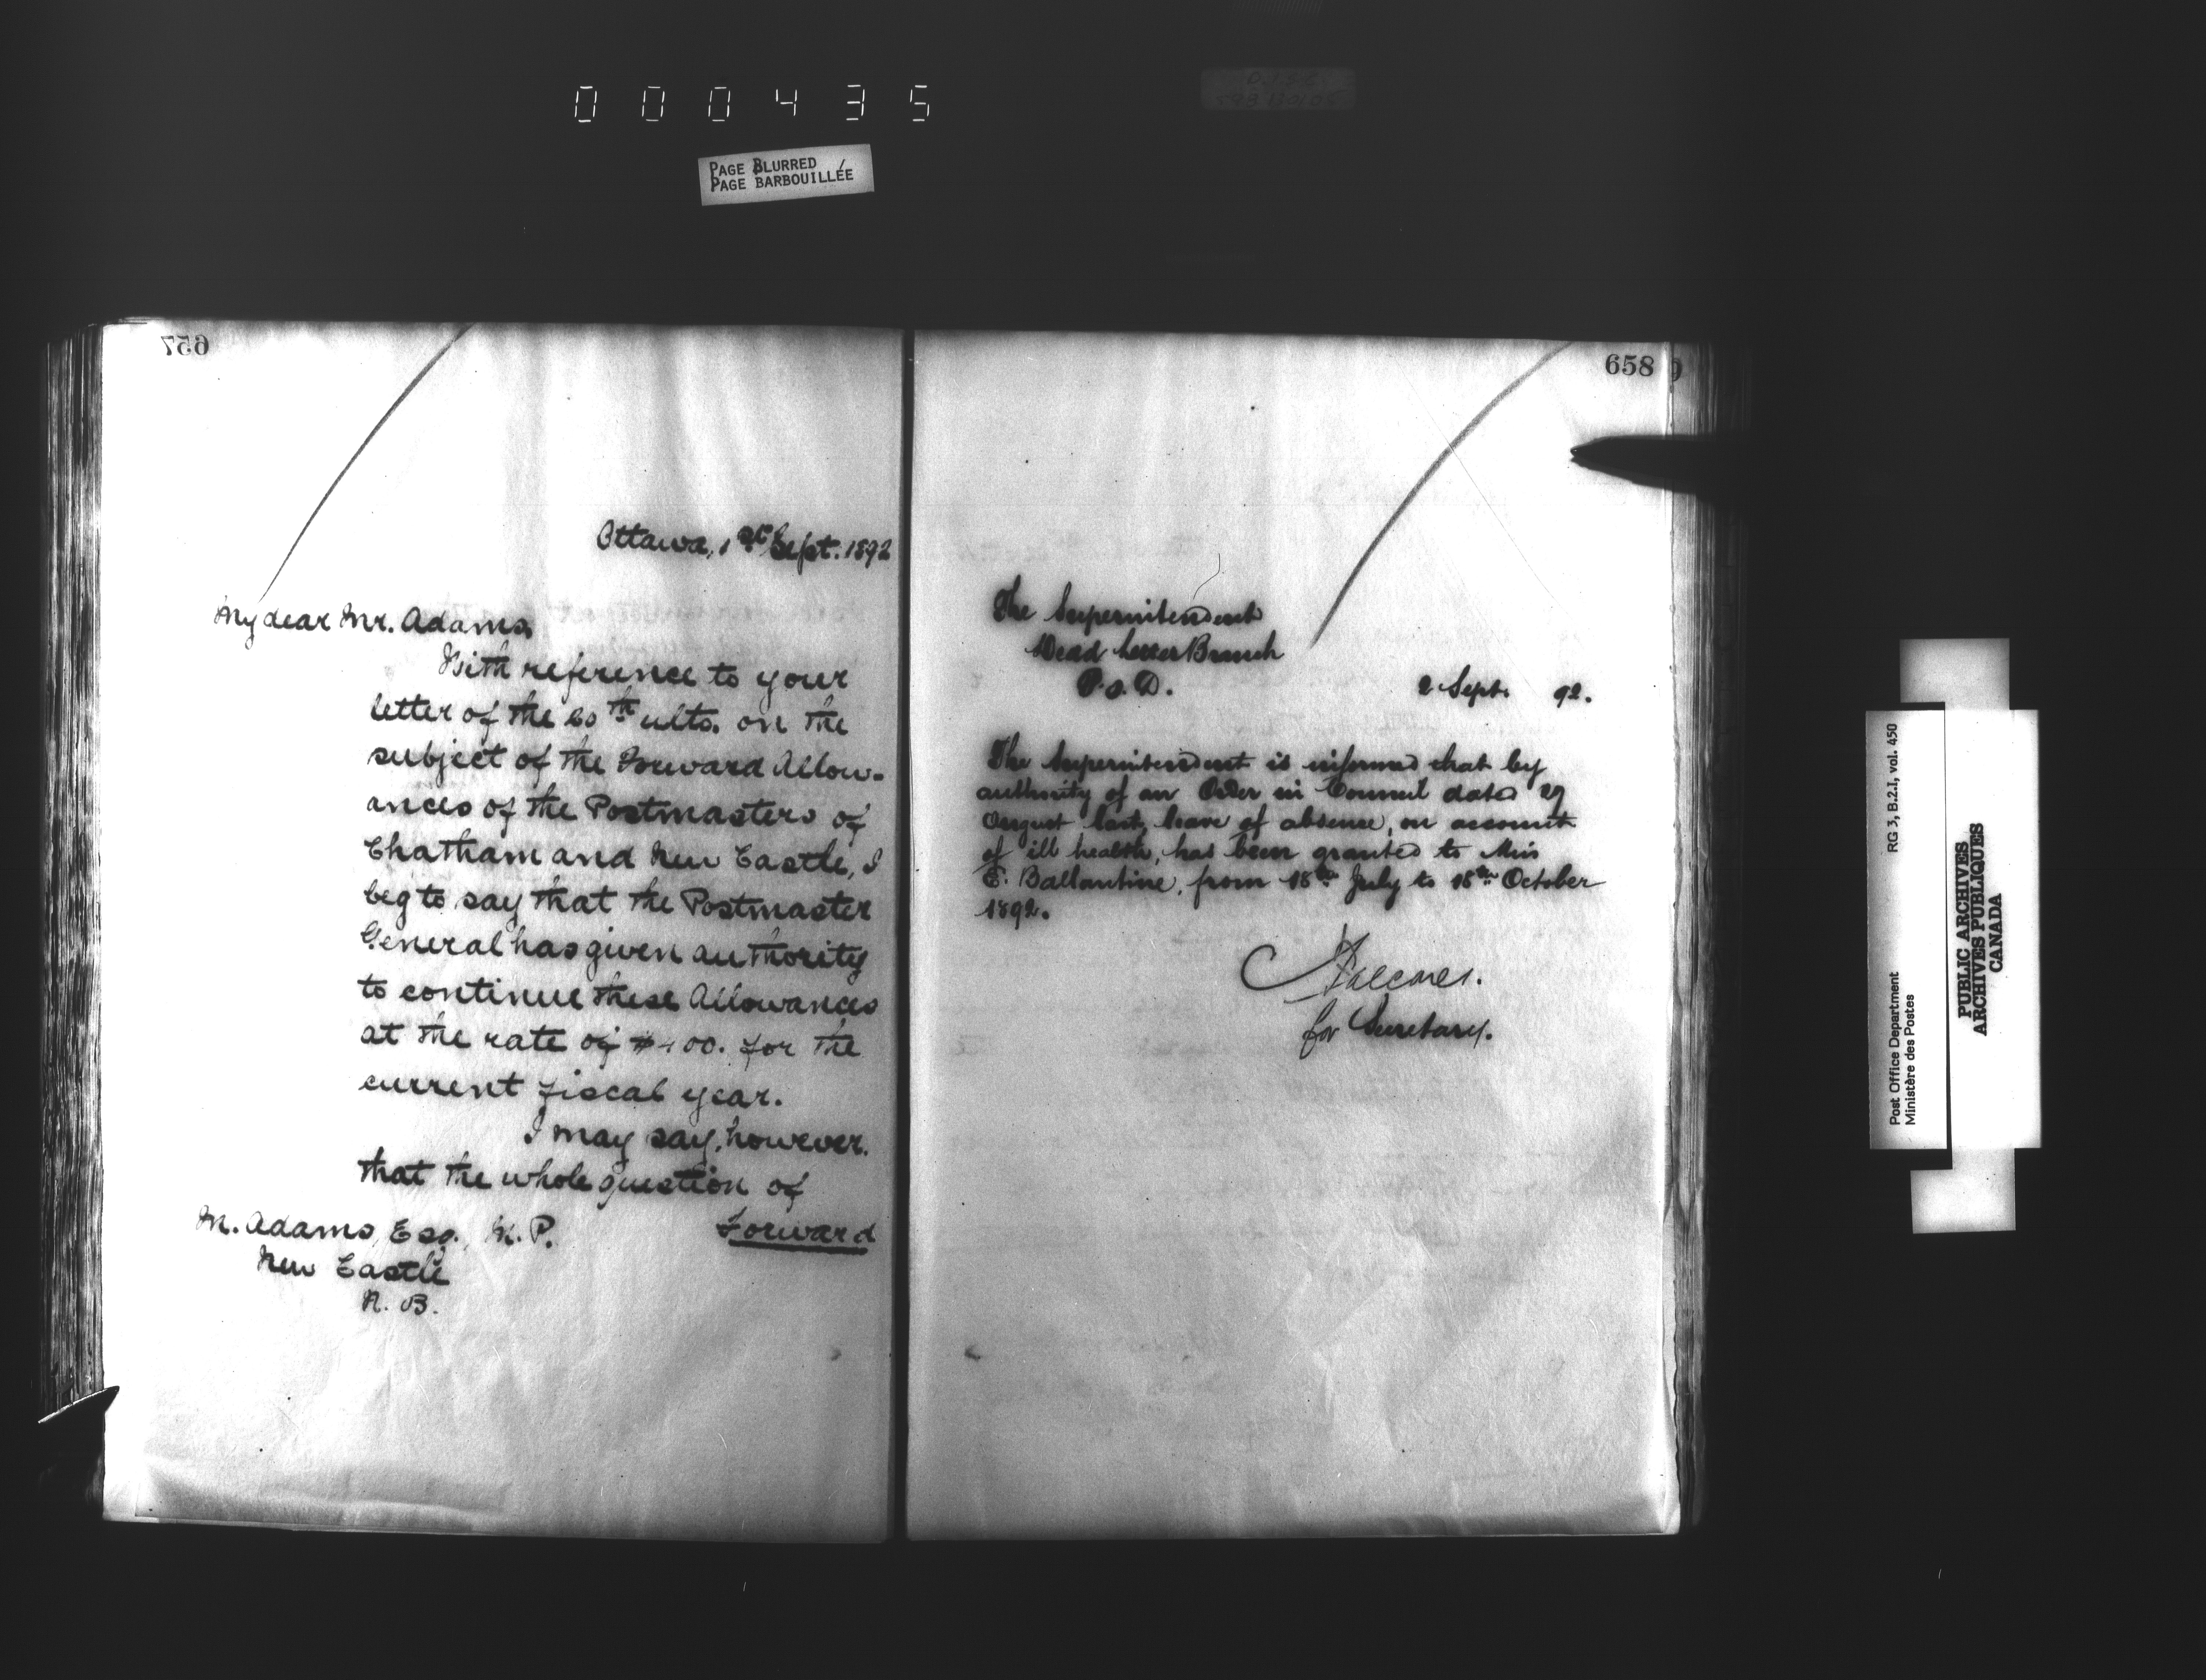 000435
PAGE BLURRED
PAGE BARBOUILLÉE
657
Ottawa, 1st Sept. 1892
My dear Mr. Adams,
With reference to your
letter of the 20th ulto. on the
subject of the Forward Allow-
ances of the Postmasters of
Chatham and New Castle, I
beg to say that the Postmaster
General has given authority
to continue these Allowances
at the rate of $400. for the
current fiscal year.
I may say, however,
that the whole question of
Forward
M. Adams, Esq., M.P.
New Castle
N. B.
658
The Superintendent
Dead Letter Branch
P.O.D.
2 Sept. 92.
The Superintendent is informed that by
authority of an Order in Council dated 29
August last, leave of absence, on account
of ill health, has been granted to Miss
E. Ballantine, from 18th July to 18th October
1892.
for Secretary.
Post Office Department
Ministère des Postes
RG 3, B.2.1, vol. 450
PUBLIC ARCHIVES
ARCHIVES PUBLIQUES
CANADA